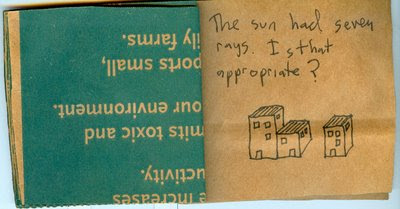 The sun had seven
rays. Is that
appropriate?
e increases
uctivity.
mits toxic and
our environment.
ports small,
ily farms.